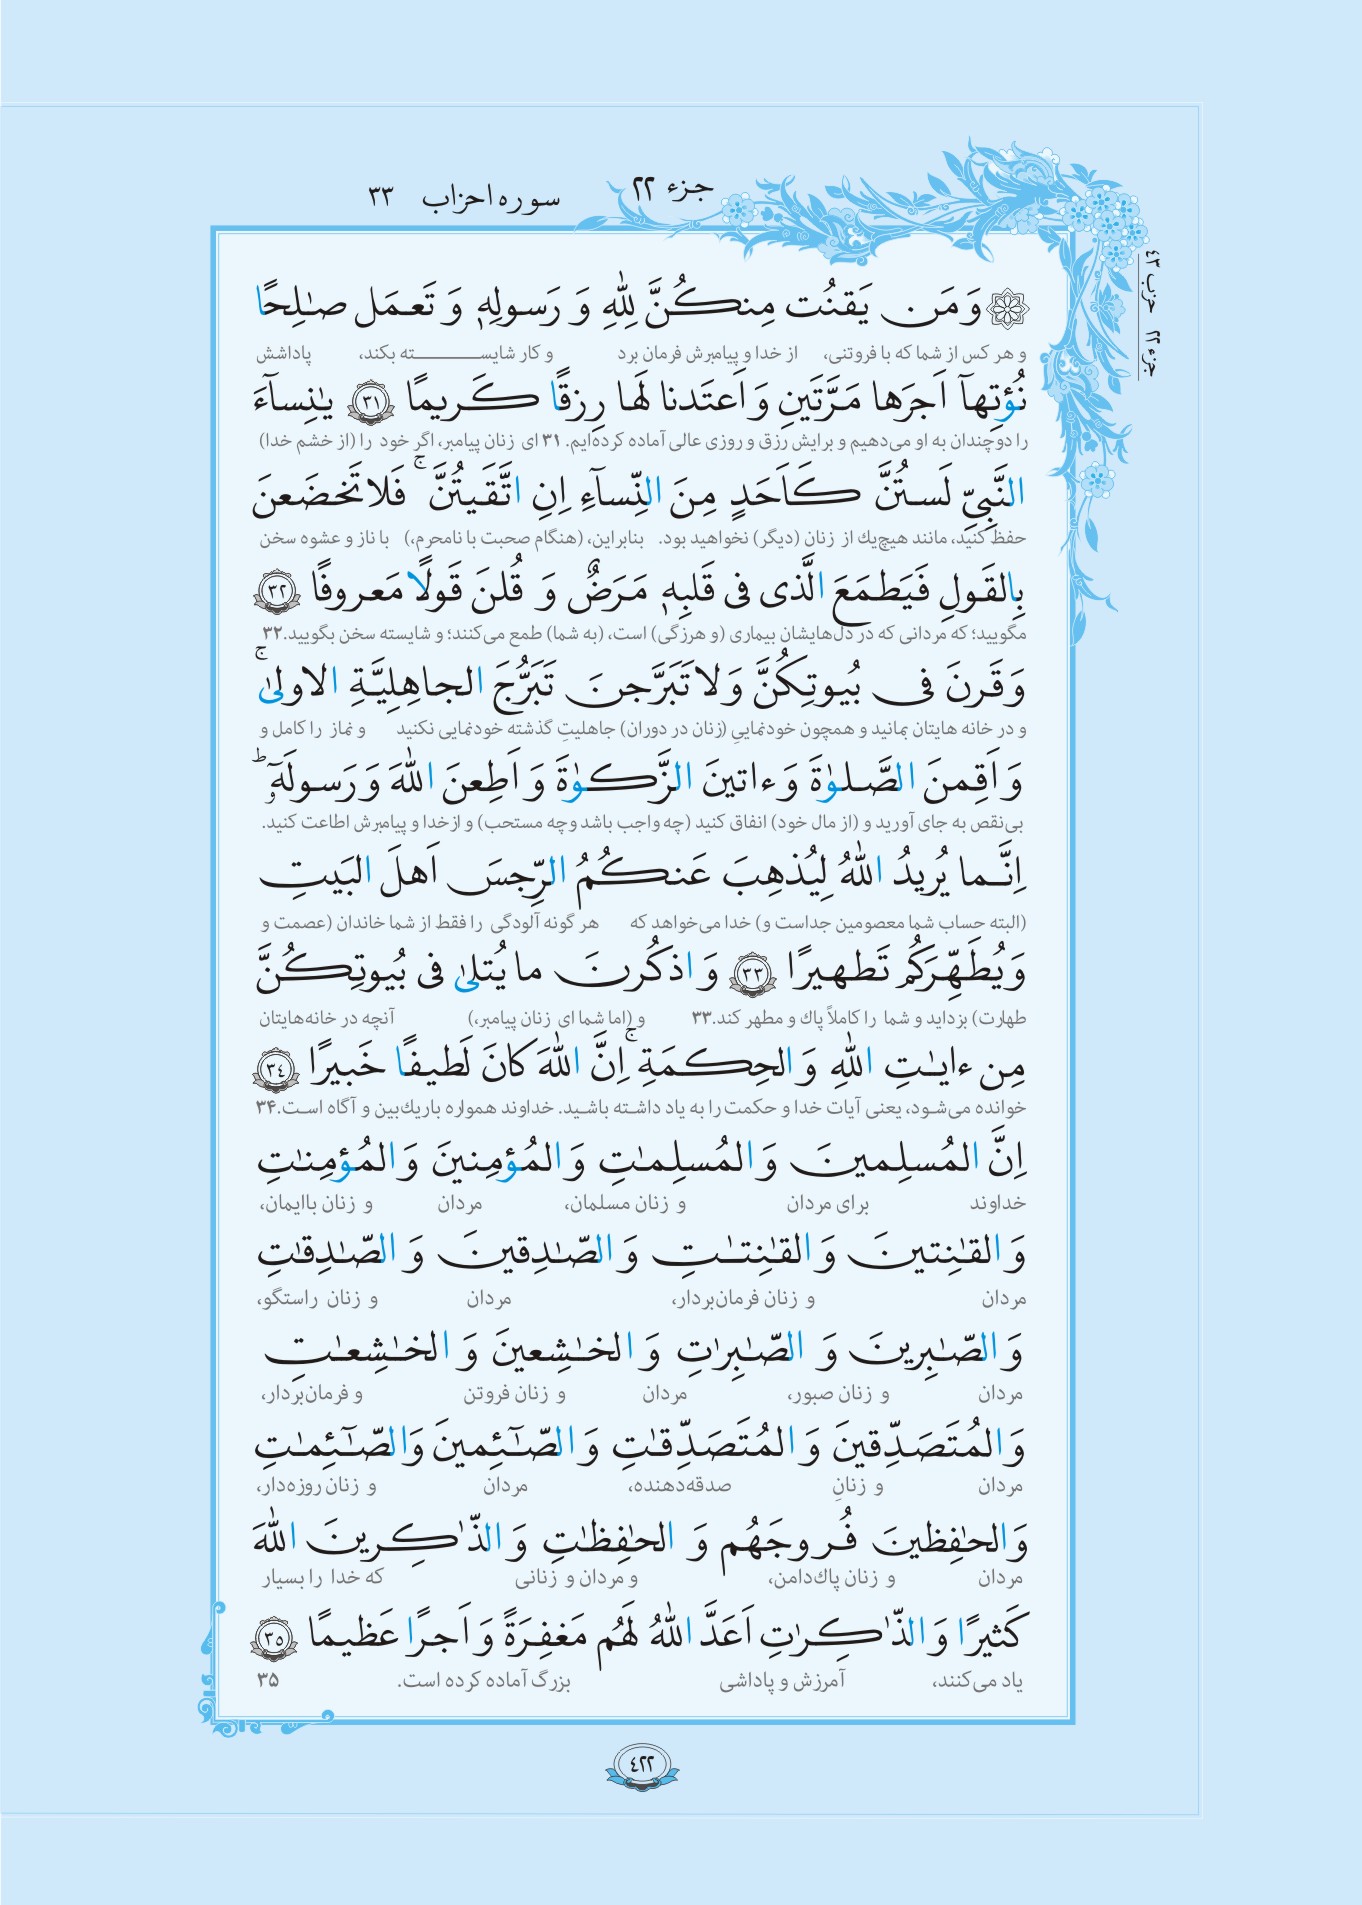 جزء ۲۲
سوره احزاب ۳۳
جزء ۲۲ حزب ٤٣
وَ مَن يَقنُت مِنكُنَّ لِلّٰهِ وَ رَسولِهٖ وَ تَعمَل صٰلِحًا
و هر کس از شما که با فروتنی، از خدا و پیامبرش فرمان برد و کار شایسته بکند، پاداشش
نُؤتِهآ اَجرَها مَرَّتَينِ وَ اَعتَدنا لَها رِزقًا كَريمًا ۳۱ يٰنِسآءَ
را دوچندان به او می‌دهیم و برایش رزق و روزی عالی آماده کرده‌ایم. ۳۱ ای زنان پیامبر، اگر خود را (از خشم خدا)
النَّبِيِّ لَستُنَّ كَاَحَدٍ مِنَ النِّسآءِ اِنِ اتَّقَيتُنَّ ۚ فَلا تَخضَعنَ
حفظ کنید، مانند هیچ‌یك از زنان (دیگر) نخواهید بود. بنابراین، (هنگام صحبت با نامحرم،) با ناز و عشوه سخن
بِالقَولِ فَيَطمَعَ الَّذى فى قَلبِهٖ مَرَضٌ وَ قُلنَ قَولًا مَعروفًا ۳۲
مگویید؛ که مردانی که در دل‌هایشان بیماری (و هرزگی) است، (به شما) طمع می‌کنند؛ و شایسته سخن بگویید.۳۲
وَ قَرنَ فى بُيوتِكُنَّ وَ لا تَبَرَّجنَ تَبَرُّجَ الجاهِلِيَّةِ الاولىٰ ۚ
و در خانه هایتان بمانید و همچون خودنماییِ (زنان در دوران) جاهلیتِ گذشته خودنمایی نکنید و نماز را کامل و
وَ اَقِمنَ الصَّلوٰةَ وَ ءاتينَ الزَّكوٰةَ وَ اَطِعنَ اللّٰهَ وَ رَسولَهٗٓ ۚؕ
بی‌نقص به جای آورید و (از مال خود) انفاق کنید (چه واجب باشد وچه مستحب) و ازخدا و پیامبرش اطاعت کنید.
اِنَّما يُريدُ اللّٰهُ لِيُذهِبَ عَنكُمُ الرِّجسَ اَهلَ البَيتِ
(البته حساب شما معصومین جداست و) خدا می‌خواهد که هر گونه آلودگی را فقط از شما خاندان (عصمت و
وَ يُطَهِّرَكُم تَطهيرًا ۳۳ وَ اذكُرنَ ما يُتلىٰ فى بُيوتِكُنَّ
طهارت) بزداید و شما را کاملاً پاك و مطهر کند.۳۳ و (اما شما ای زنان پیامبر،) آنچه در خانه‌هایتان
مِن ءايٰتِ اللّٰهِ وَ الحِكمَةِ ۚ اِنَّ اللّٰهَ كانَ لَطيفًا خَبيرًا ۳٤
خوانده می‌شود، یعنی آیات خدا و حکمت را به یاد داشته باشید. خداوند همواره باریك‌بین و آگاه است.۳۴
اِنَّ المُسلِمينَ وَ المُسلِمٰتِ وَ المُؤمِنينَ وَ المُؤمِنٰتِ
خداوند برای مردان و زنان مسلمان، مردان و زنان باایمان،
وَ القٰنِتينَ وَ القٰنِتٰتِ وَ الصّٰدِقينَ وَ الصّٰدِقٰتِ
مردان و زنان فرمان‌بردار، مردان و زنان راستگو،
وَ الصّٰبِرينَ وَ الصّٰبِرٰتِ وَ الخٰشِعينَ وَ الخٰشِعٰتِ
مردان و زنان صبور، مردان و زنان فروتن و فرمان‌بردار،
وَ المُتَصَدِّقينَ وَ المُتَصَدِّقٰتِ وَ الصّٰٓئِمينَ وَ الصّٰٓئِمٰتِ
مردان و زنانِ صدقه‌دهنده، مردان و زنان روزه‌دار،
وَ الحٰفِظينَ فُروجَهُم وَ الحٰفِظٰتِ وَ الذّٰكِرينَ اللّٰهَ
مردان و زنان پاك‌دامن، و مردان و زنانی که خدا را بسیار
كَثيرًا وَ الذّٰكِرٰتِ اَعَدَّ اللّٰهُ لَهُم مَغفِرَةً وَ اَجرًا عَظيمًا ۳٥
یاد می‌کنند، آمرزش و پاداشی بزرگ آماده کرده است. ۳۵
٤٢٢